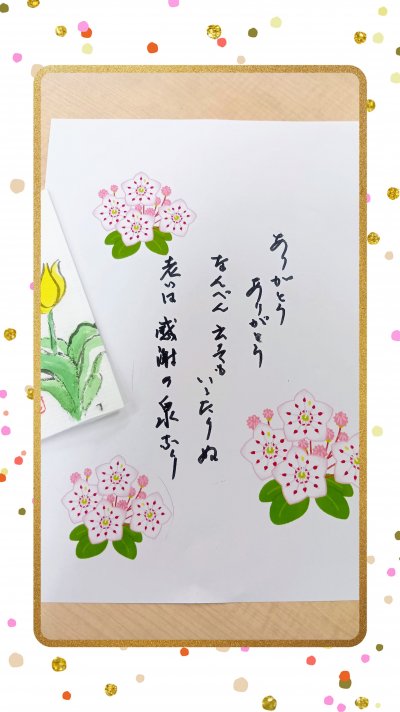 ありがとう
ありがとう
なんべん 云ても いいたりぬ
老いは 感謝の泉なり